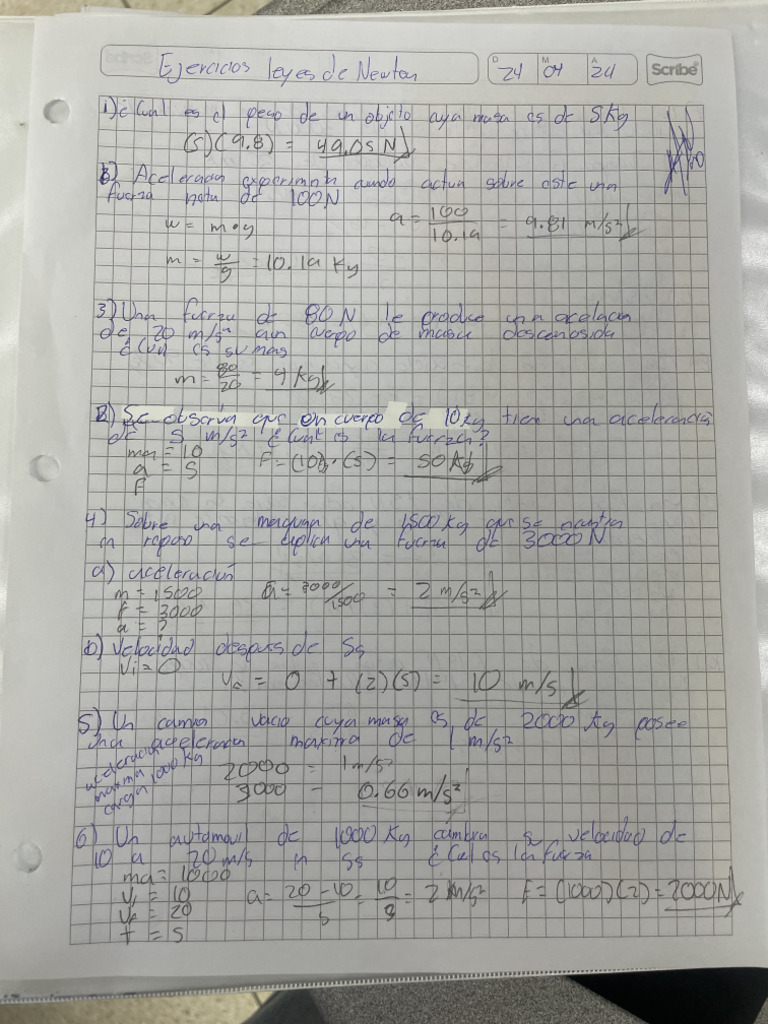 Ejercicios leyes de Newton
D 24 M 04 A 24
Scribe
1) ¿Cual es el peso de un objeto cuya masa es de 5 Kg
(5)(9.8) = 49.05 N
Aceleracion experimenta cuando actua sobre este una
fuerza neta de 100N
w = m•g
a = 100/10.19 = 9.81 m/s²
m = w/g = 10.19 Kg
3) Una fuerza de 80 N le produce una acelacion
de 20 m/s² a un cuerpo de masa desconosida
¿Cual es su mas
m = 80/20 = 4 Kg
2) Se observa que un cuerpo de 10 Kg tiene una aceleracion
de 5 m/s² ¿Cual es la fuerza?
ma = 10
a = 5
F
F = (10)•(5) = 50
4) Sobre una maquina de 1500 Kg que se
en reposo se aplica una fuerza de 3000 N
a) aceleración
m = 1500
F = 3000
a = ?
a = 3000/1500 = 2 m/s²
b) Velocidad despues de 5s
Vi = 0
= 0 + (2)(5) = 10 m/s
5) Un camion vacio cuya masa es de 2000 Kg posee
una aceleracion maxima de 1 m/s²
aceleracion
maxima
carga 1000 Kg
2000 = 1 m/s²
3000 - 0.66 m/s²
6) Un automovil de 1000 Kg cambia su velocidad de
10 a 20 m/s en 5s ¿Cual es la fuerza
ma = 1000
Vi = 10
Vf = 20
t = 5
a = 20 - 10/5 = 10/5 = 2 m/s²
F = (1000)(2) = 2000N